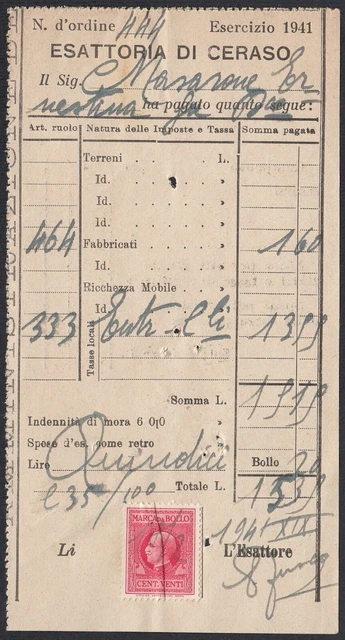 N. d'ordine 444 Esercizio 1941
ESATTORIA DI CERASO
Il Sig. Masarone Er
nestina fu ha pagato quanto segue:
Art. ruolo Natura delle Imposte e Tassa Somma pagata
Terreni . . . . L.
Id. . . . . »
Id. . . . . »
Id. . . . . »
464 Fabbricati . . . . » 160
Id. . . . . »
Ricchezza Mobile . . »
Tasse locali
333 Entr. C li 1355
Somma L. 1515
Indennità di mora 6 0|0 »
Spese d'es. come retro »
Lire Quindici Bollo 20
e 35/100 Totale L. 1535
MARCA DA BOLLO
CENT. VENTI
1941 XIX
Li L'Esattore